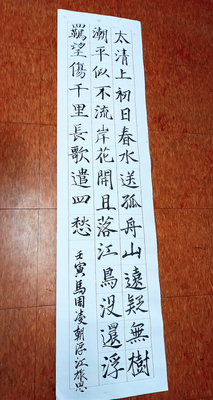 太清上初日春水送孤舟山遠疑無樹
潮平似不流岸花開且落江鳥没還浮
羁望傷千里長歌遣四愁
壬寅馬周凌朝浮江旅思